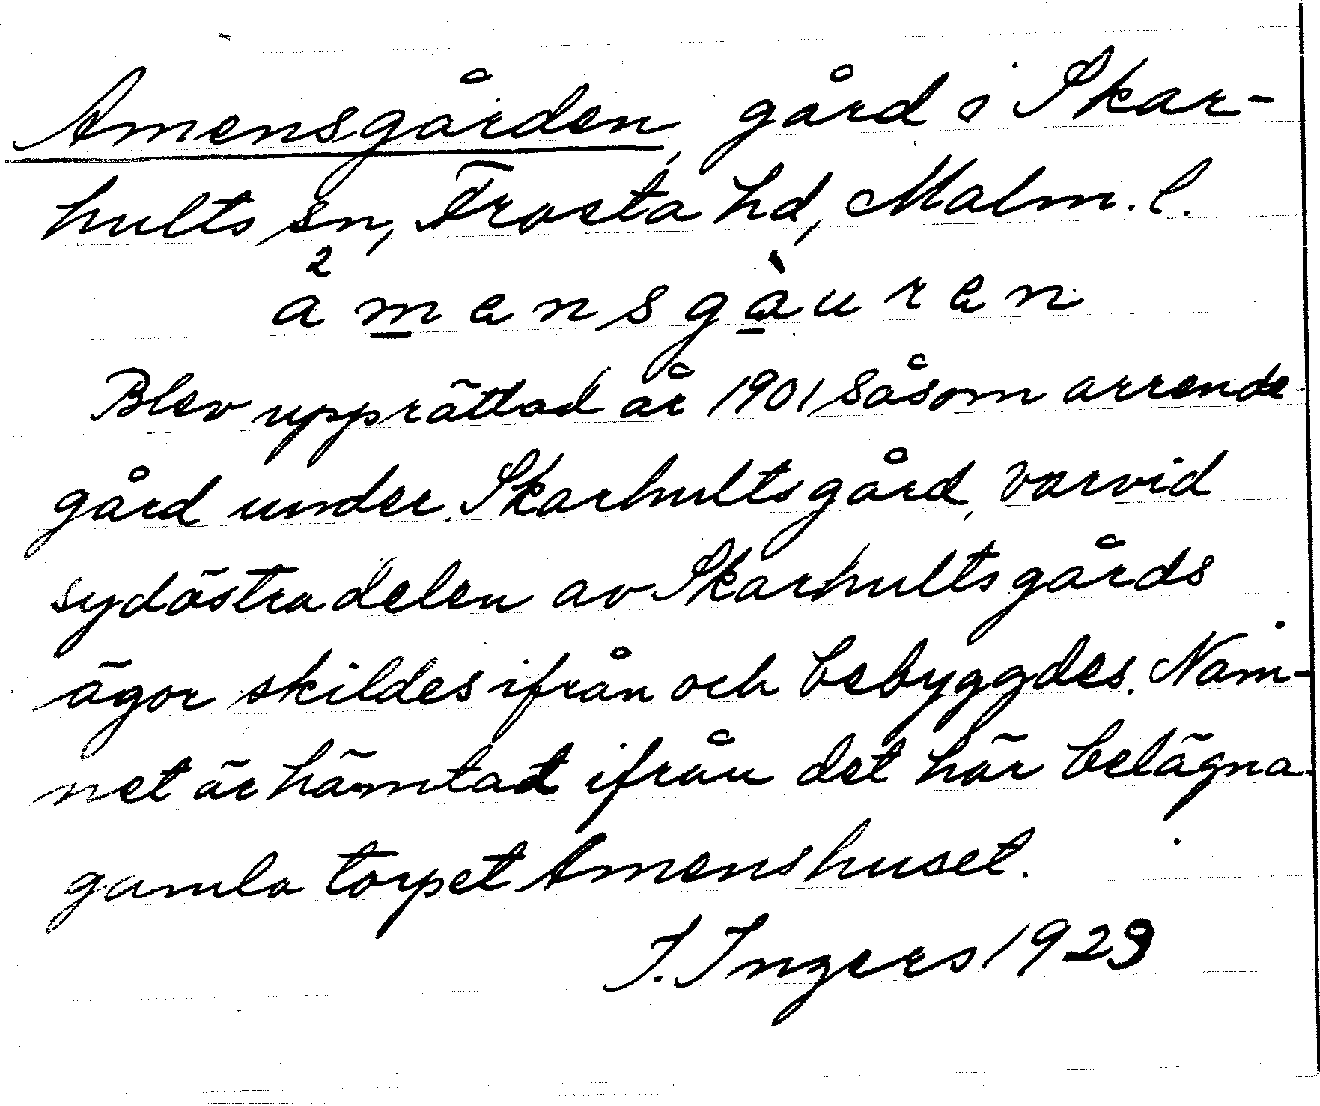 Amensgården, gård i Skar-
hults sn, Frosta hd, Malm. l.
a²mensgàuren
Blev upprättad år 1901 såsom arrende
gård under Skarhultsgård, varvid
sydöstra delen av Skarhultsgårds
ägor skildes ifrån och bebyggdes. Nam-
net är hämtat ifrån det här belägna
gamla torpet Amenshuset.
I. Ingers 1923